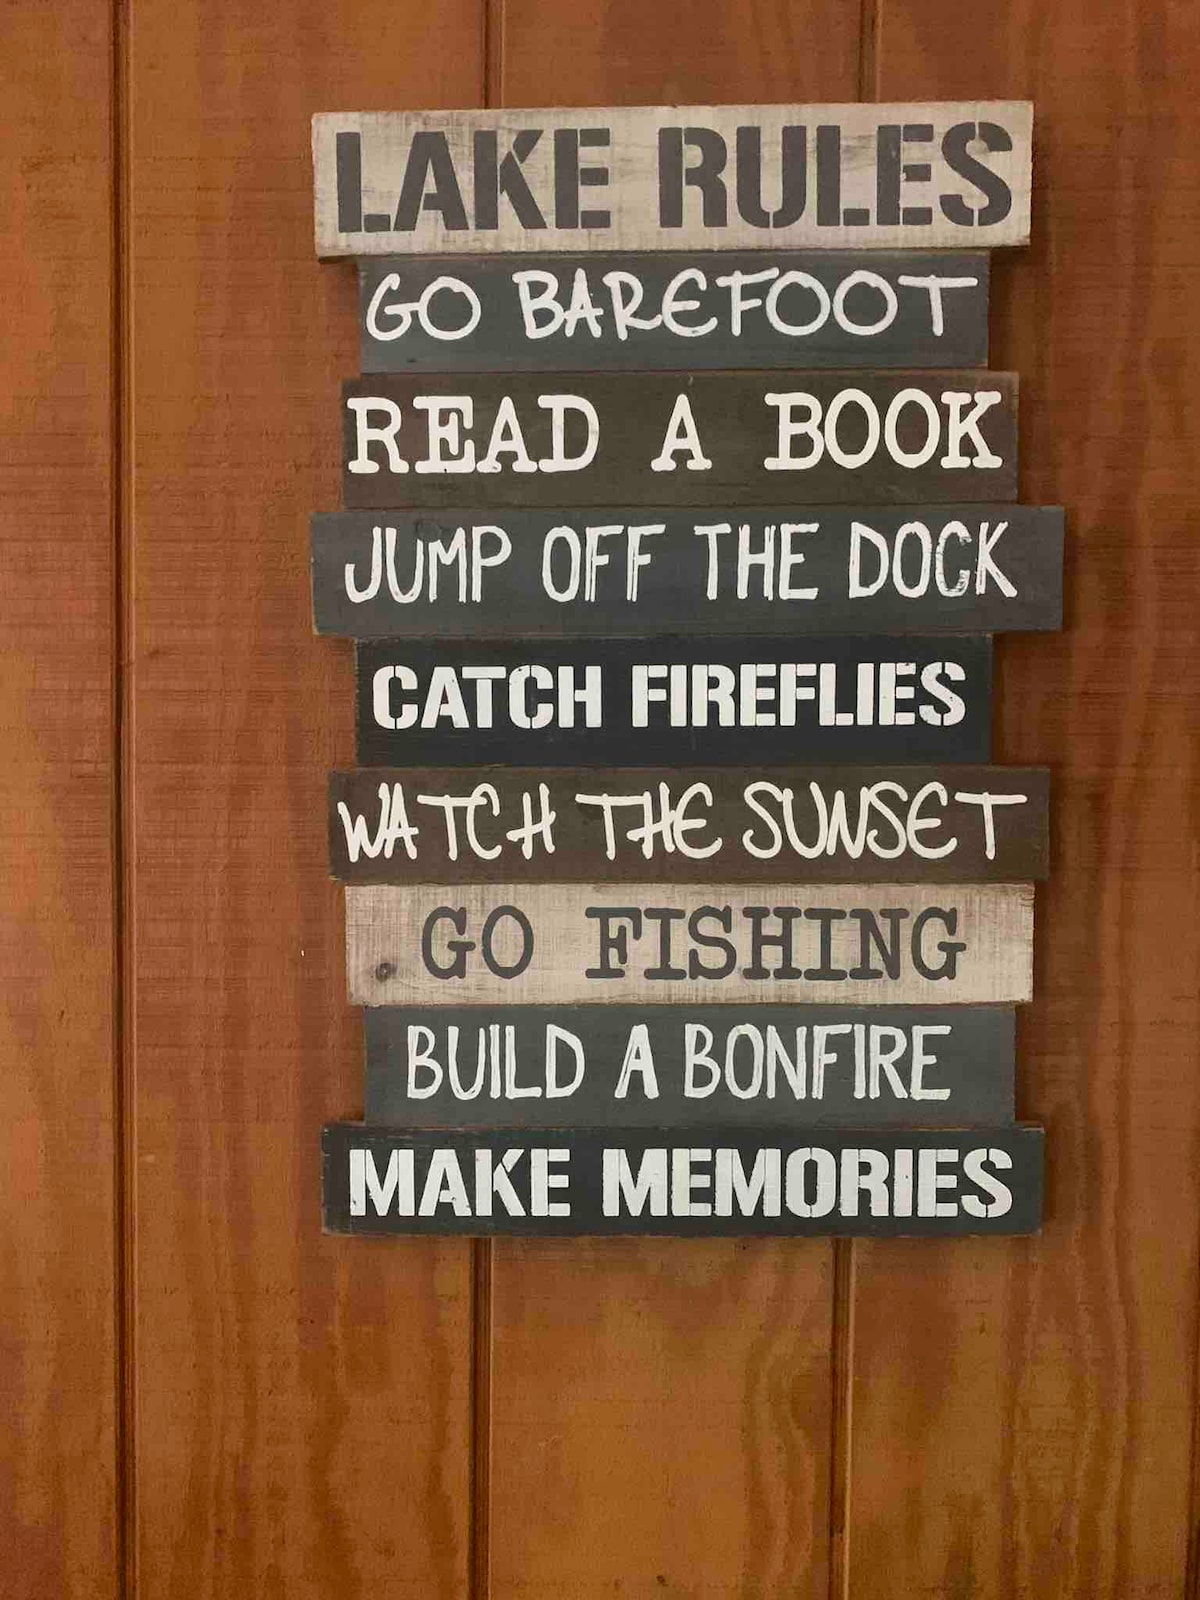 LAKE RULES
GO BAREFOOT
READ A BOOK
JUMP OFF THE DOCK
CATCH FIREFLIES
WATCH THE SUNSET
GO FISHING
BUILD A BONFIRE
MAKE MEMORIES